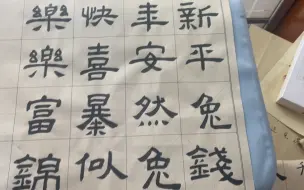 新年快樂
平安喜樂
兔然暴富
錢兔似錦